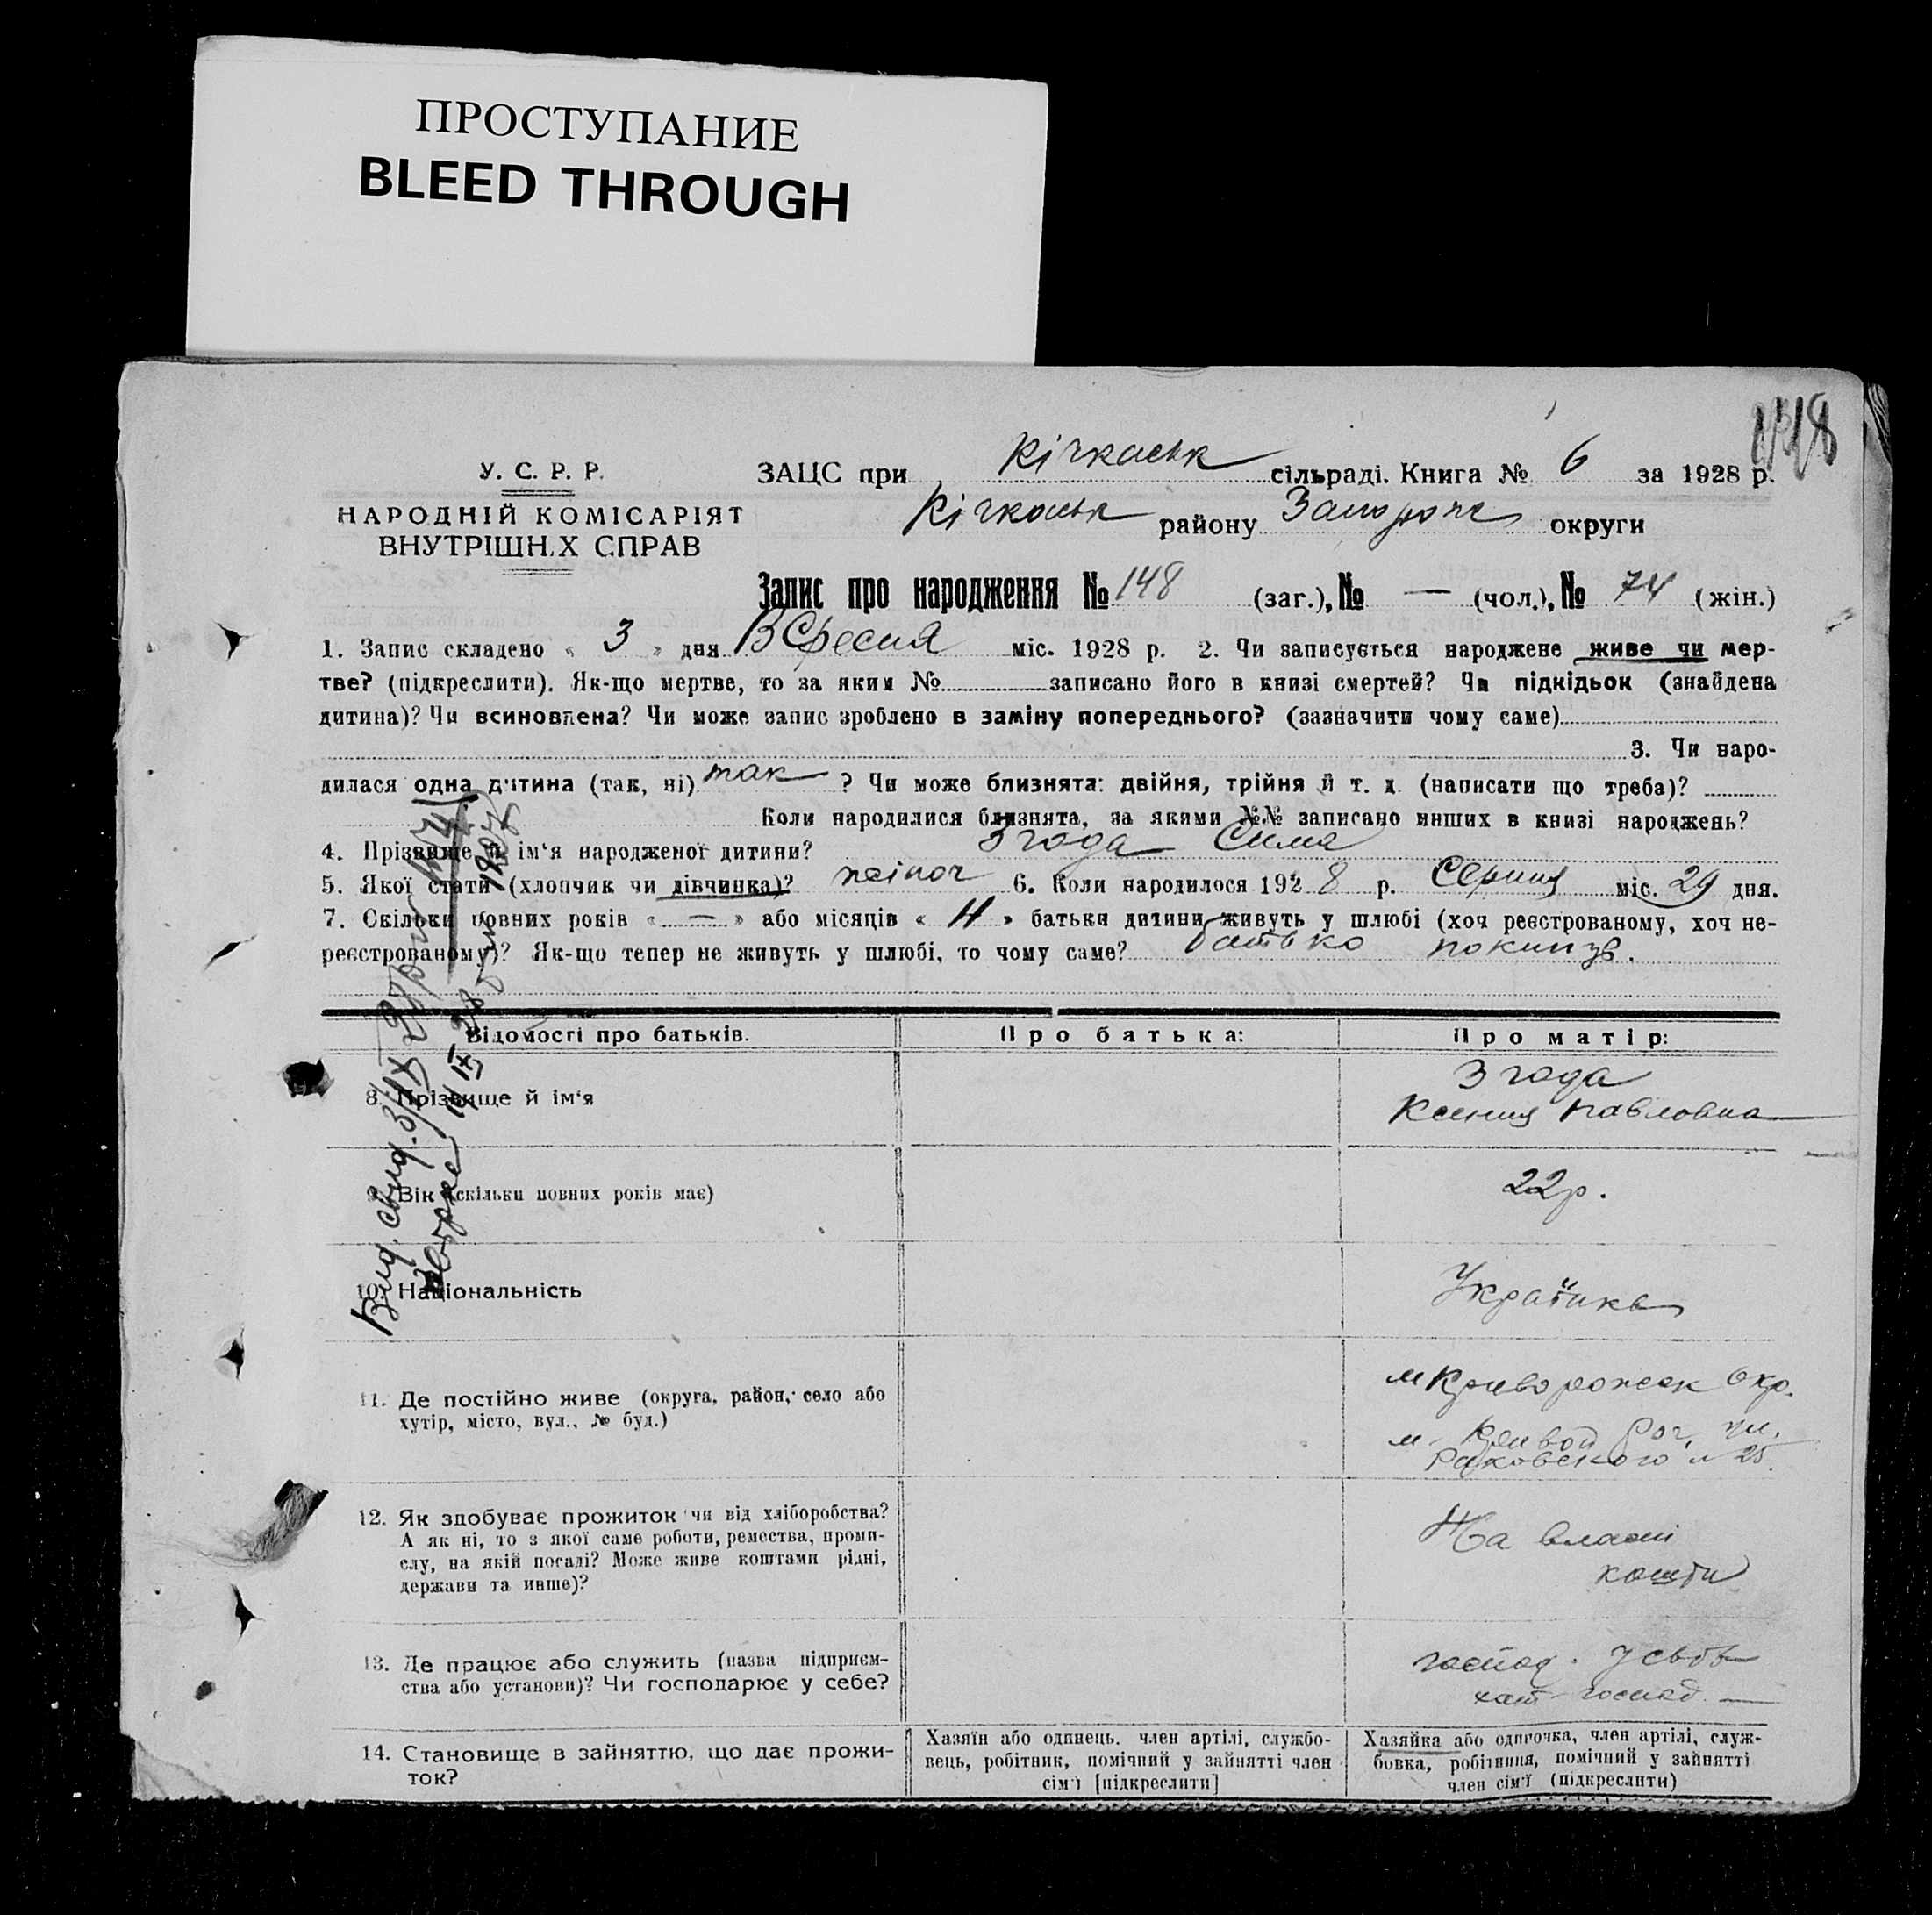 ПРОСТУПАНИЕ
BLEED THROUGH
148
У. С. Р. Р.
НАРОДНІЙ КОМІСАРІЯТ
ВНУТРІШНІХ СПРАВ
ЗАЦС при Кічкаськ сільраді. Книга № 6 за 1928 р.
Кічкаськ району Запорож округи
Запис про народження № 148 (заг.), № — (чол.), № 74 (жін.)
1. Запис складено « 3 » дня Вересня міс. 1928 р. 2. Чи записується народжене живе чи мер-
тве? (підкреслити). Як-що мертве, то за яким № записано його в книзі смертей? Чи підкідьок (знайдена
дитина)? Чи всиновлена? Чи може запис зроблено в заміну попереднього? (зазначити чому саме)
3. Чи наро-
дилася одна дитина (так, ні) так ? Чи може близнята: двійня, трійня й т. д. (написати що треба)?
Коли народилися близнята, за якими №№ записано инших в книзі народжень?
4. Прізвище й ім‘я народженої дитини? Згода Сима
5. Якої стати (хлопчик чи дівчинка)? жіноч 6. Коли народилося 1928 р. Серпня міс. 29 дня.
7. Скільки повних років « — » або місяців « » батьки дитини живуть у шлюбі (хоч реєстрованому, хоч не-
реєстрованому)? Як-що тепер не живуть у шлюбі, то чому саме? батько покинув.
Відомості про батьків.
Про батька:
Про матір:
8. Прізвище й ім‘я
Згода
Ксения Павловна
9. Вік (скільки повних років має)
22 р.
10. Національність
Українка
11. Де постійно живе (округа, район, село або
хутір, місто, вул., № буд.)
Криворожск Окр.
м. Кривой Рог, ул.
Раковского № 25
12. Як здобуває прожиток чи від хліборобства?
А як ні, то з якої саме роботи, ремества, проми-
слу, на якій посаді? Може живе коштами рідні,
держави та инше)?
На власні
кошти
13. Де працює або служить (назва підприєм-
ства або установи)? Чи господарює у себе?
господ.
господ.
14. Становище в зайняттю, що дає прожи-
ток?
Хазяїн або одинець, член артілі, службо-
вець, робітник, помічний у зайнятті член
сім‘ї [підкреслити]
Хазяйка або одиночка, член артілі, служ-
бовка, робітниця, помічний у зайнятті
член сім‘ї (підкреслити)
Вид. свид. 3/IX